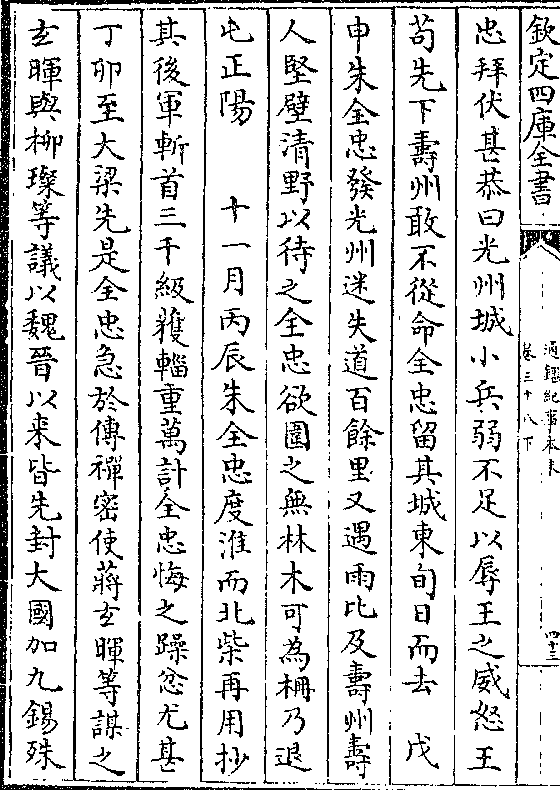 欽定四庫全書
通鑑紀事本末
卷三十八下
四十三
忠拜伏甚恭曰光州城小兵弱不足以辱王之威怒王
苟先下壽州敢不從命全忠留其城東旬日而去　戊
申朱全忠發光州迷失道百餘里又遇雨比及壽州壽
人堅壁清野以待之全忠欲圍之無林木可為柵乃退
屯正陽　十一月丙辰朱全忠度淮而北柴再用抄
其後軍斬首三千級獲輜重萬計全忠悔之躁忿尤甚
丁卯至大梁先是全忠急於傳禪密使蔣玄暉等謀之
玄暉與柳璨等議以魏晉以来皆先封大國加九錫殊